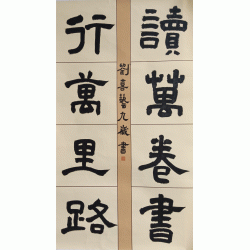 讀萬卷書
行萬里路
劉喜藝九歲書